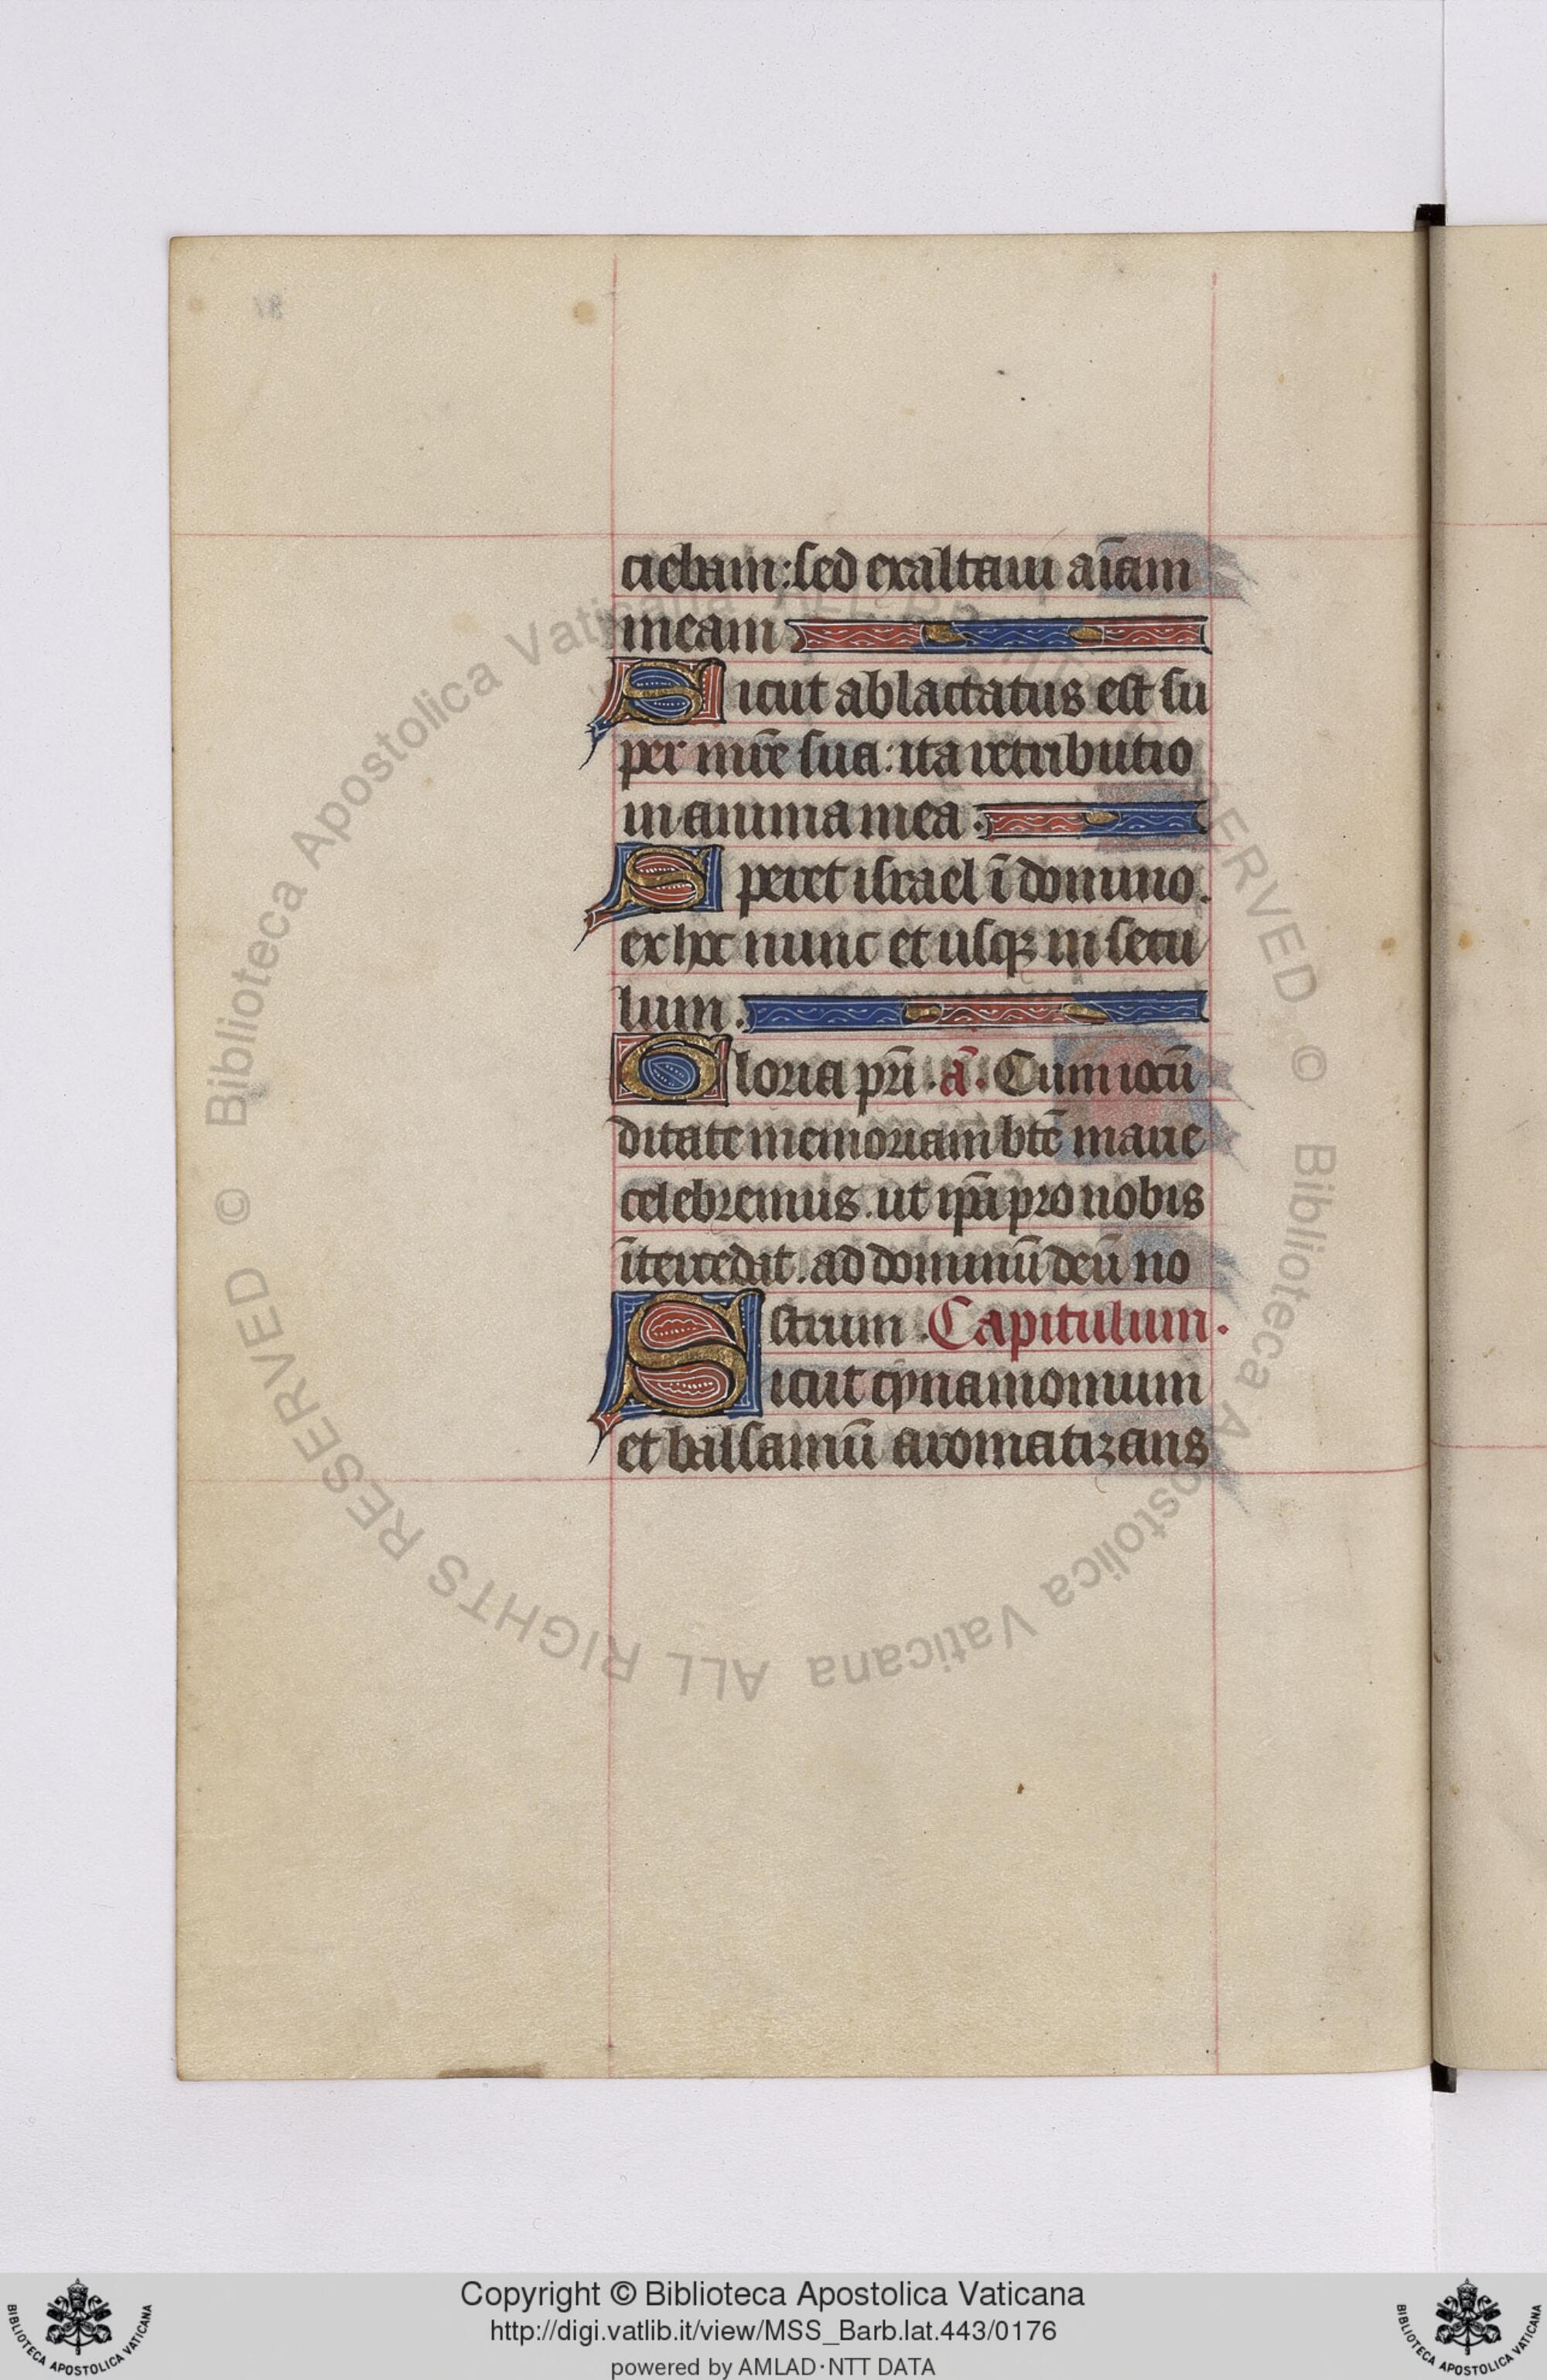 ciebam: sed exaltaui aīam
meam
Sicut ablactatus est su
per mr̄e sua: ita retributio
in anima mea.
Speret israel ī domino.
ex hoc nunc et usqꝫ in secu
lum.
Gloria pr̄i. a᷃. Cum iocū
ditate memoriam bt̄e marie
celebremus. ut ip̄a pro nobis
ītercedat. ad dominū deū no
strum. Capitulum.
Sicut cynamomum
et balsamū aromatizans
© Biblioteca Apostolica Vaticana ALL RIGHTS RESERVED © Biblioteca Apostolica Vaticana ALL RIGHTS RESERVED
Copyright © Biblioteca Apostolica Vaticana
http://digi.vatlib.it/view/MSS_Barb.lat.443/0176
powered by AMLAD·NTT DATA
BIBLIOTECA APOSTOLICA VATICANA
BIBLIOTECA APOSTOLICA VATICANA